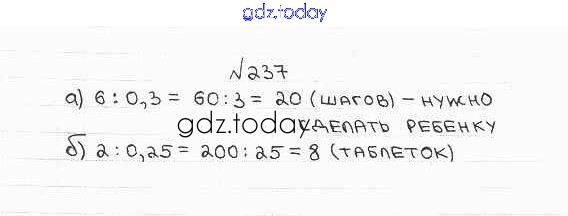 gdz.today
№237
а) 6 : 0,3 = 60 : 3 = 20 (шагов) – нужно
gdz.today сделать ребенку
б) 2 : 0,25 = 200 : 25 = 8 (таблеток)